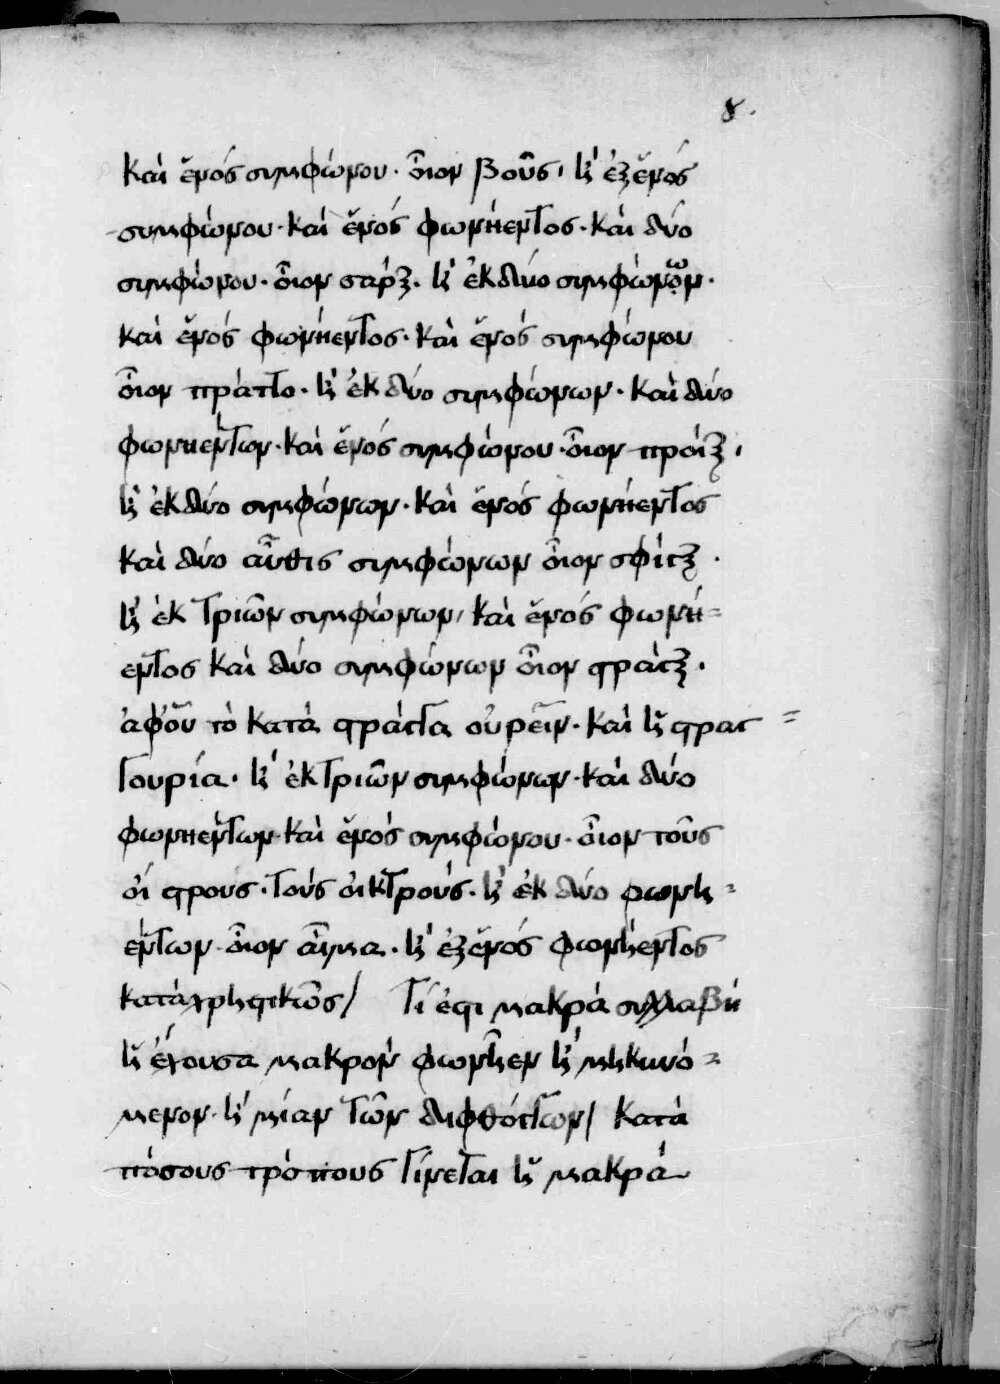 8.
Καὶ ἑνός συμφώνου· οἷον βοῦς, ἢ ἐξ ἑνός
συμφώνου· καὶ ἑνός φωνήεντος· καὶ δύο
συμφώνου· οἷον σάρξ. ἢ ἐκ δύο συμφώνων·
καὶ ἑνός φωνήεντος· καὶ ἑνός συμφώνου
οἷον πράττο· ἢ ἐκ δύο συμφώνων· καὶ δύο
φωνηέντων· καὶ ἑνός συμφώνου· οἷον πράιξ,
ἢ ἐκ δύο συμφώνων· καὶ ἑνός φωνήεντος
καὶ δύο αὖθις συμφώνων οἷον σφίγξ.
ἢ ἐκ τριῶν συμφώνων, καὶ ἑνός φωνή=
εντος καὶ δύο συμφώνων οἷον στράγξ.
ἀφ' οὗ τὸ κατὰ στράγγα οὐρεῖν. καὶ ἢ στραγ=
γουρία. ἢ ἐκ τριῶν συμφώνων· καὶ δύο
φωνηέντων· καὶ ἑνός συμφώνου· οἷον τοῦς
οἰστρους· τοὺς οἰκτρούς. ἢ ἐκ δύο φωνη=
έντων· οἷον αἷμα. ἢ ἐξ ἑνός φωνήεντος
καταχρηστικῶς/ Τί ἐστι μακρὰ συλλαβή
ἡ ἔχουσα μακρὸν φωνῆεν ἢ μηκυνό=
μενον· ἢ μίαν τῶν διφθόγγων/ Κατὰ
πόσους τρόπους γίνεται ἡ μακρὰ